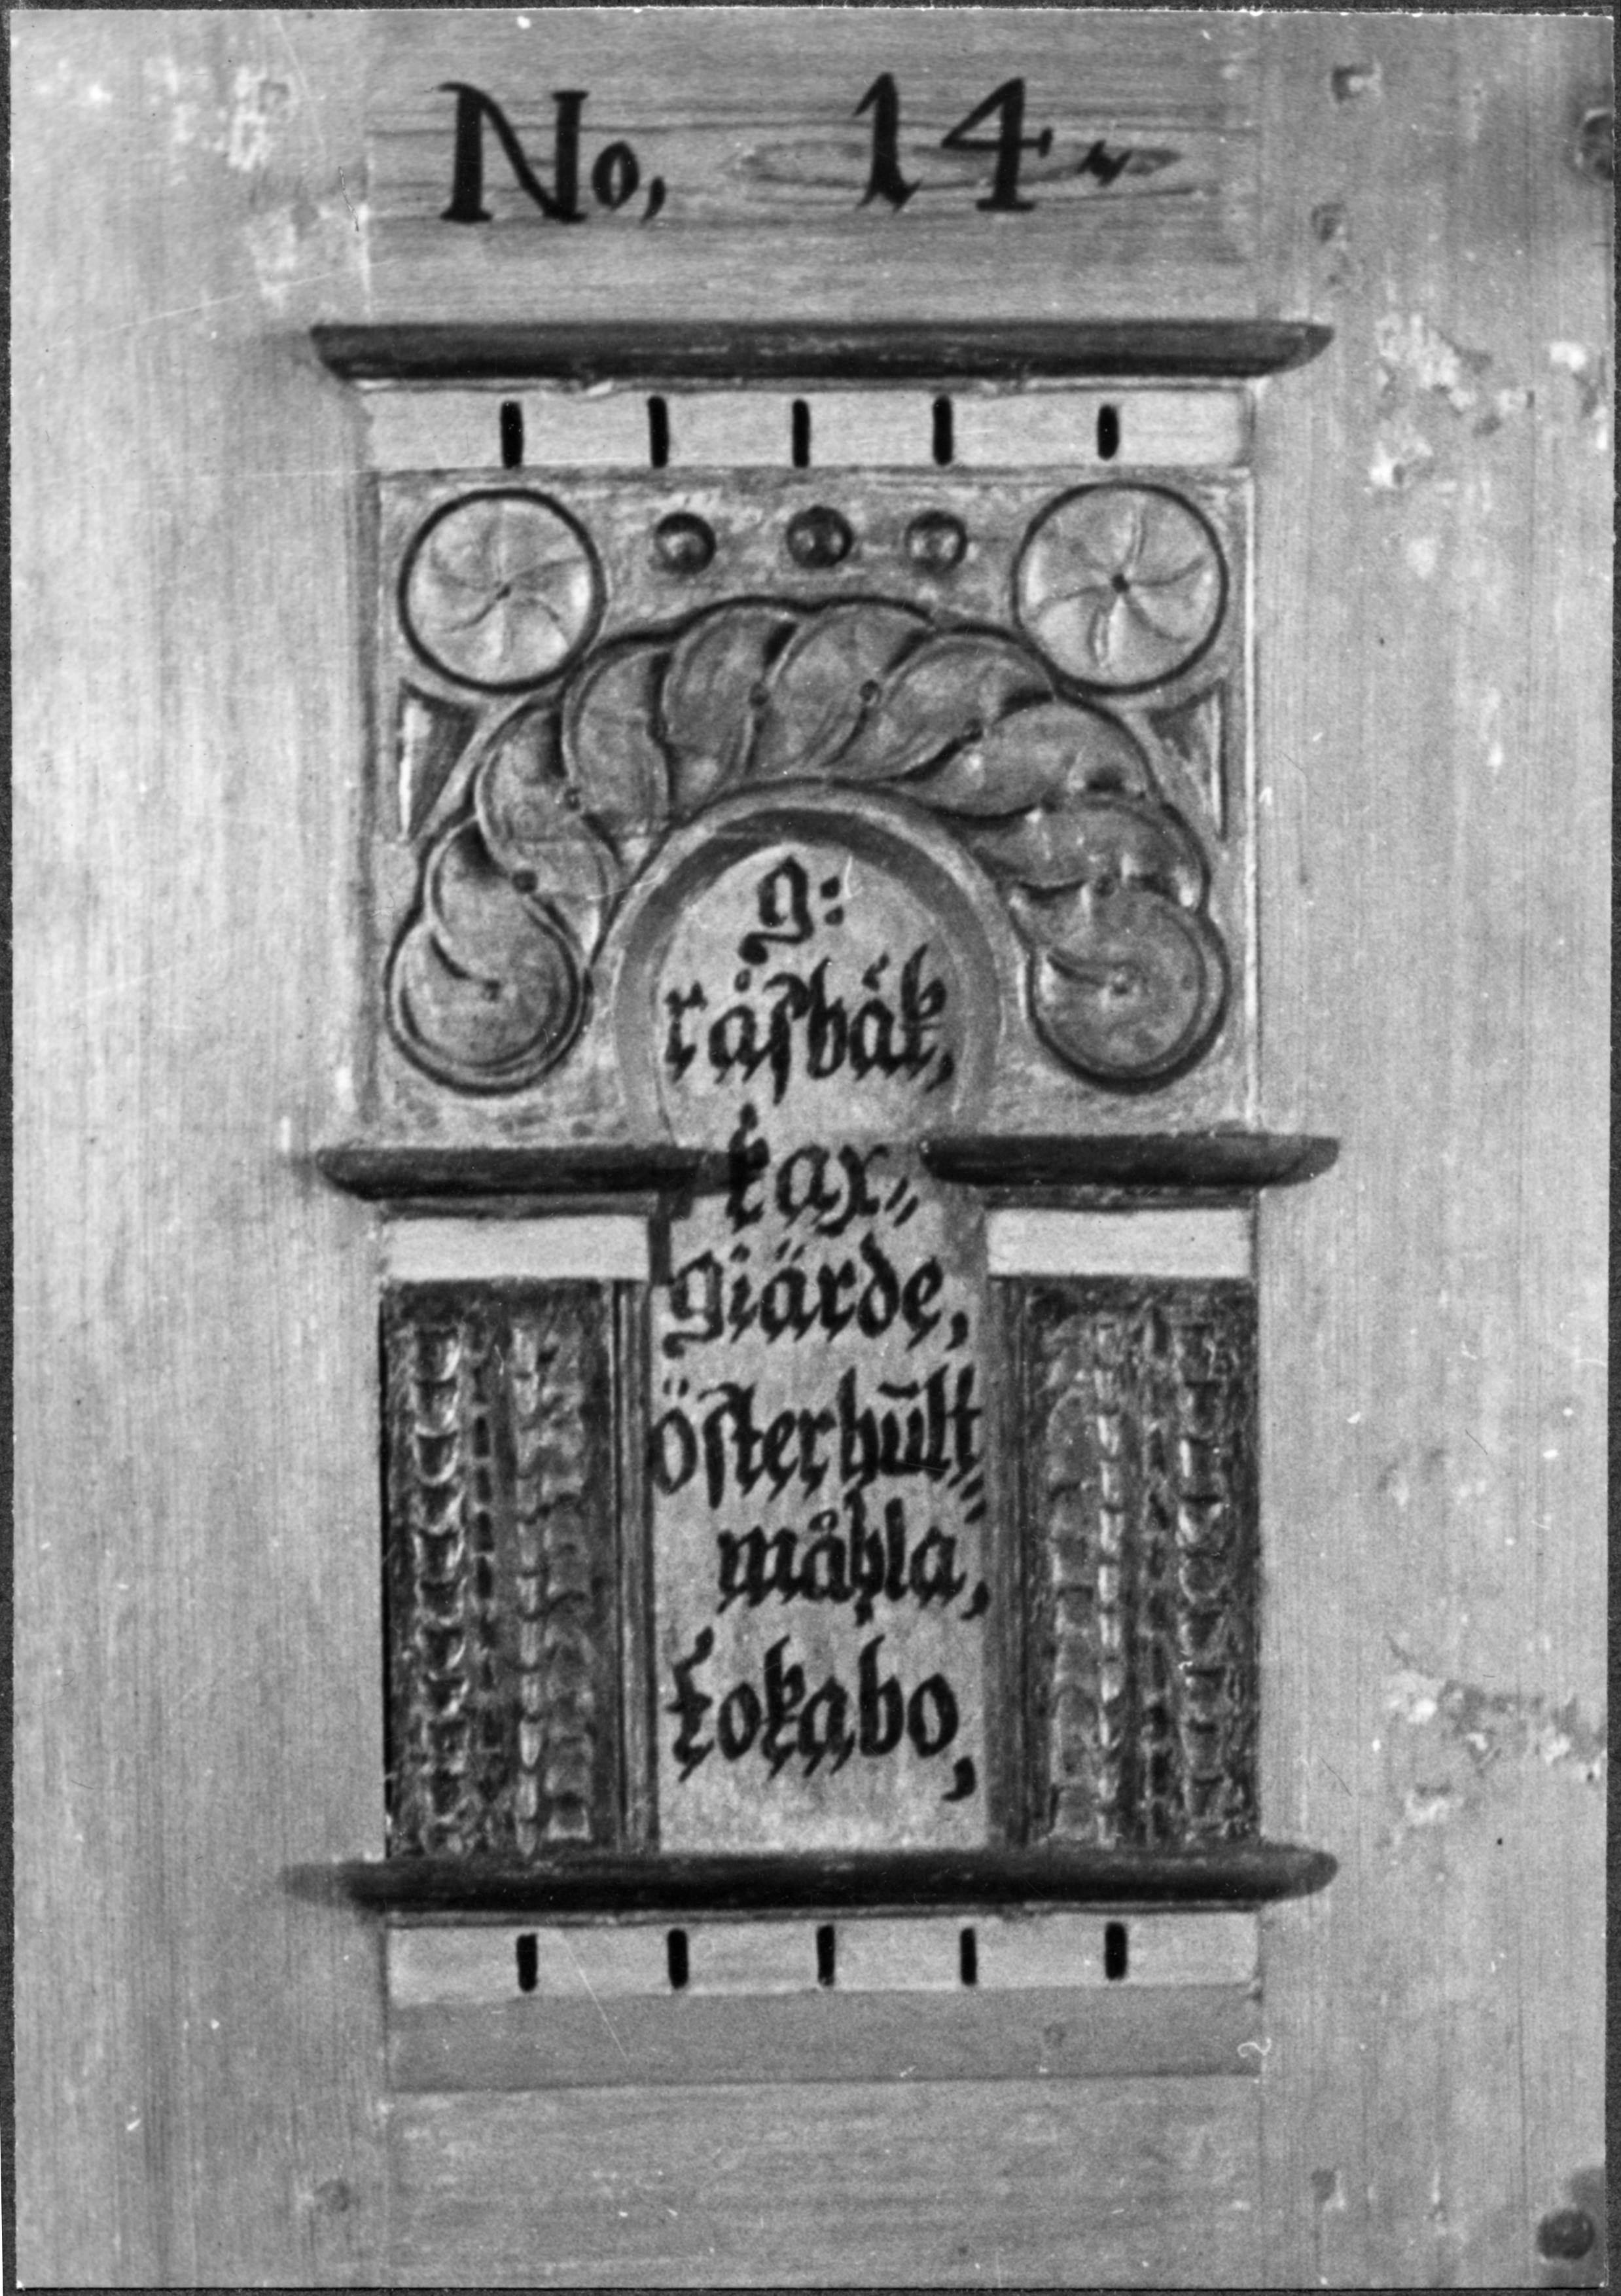 No, 14
g:
råsbäk,
kax„
giärde,
österhūlt„
måhla,
kokabo,